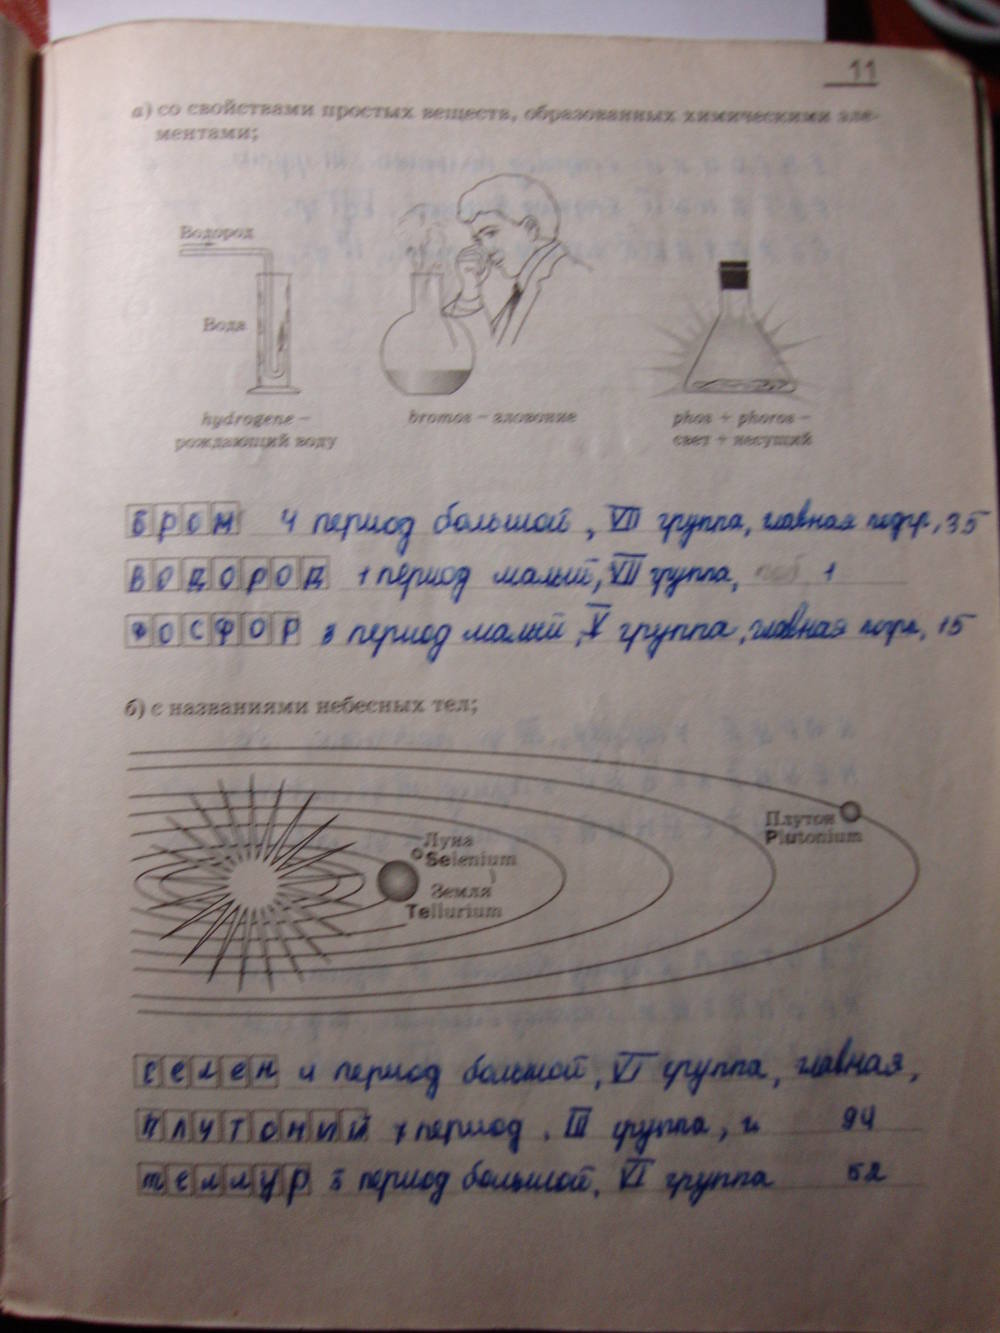 11
а) со свойствами простых веществ, образованных химическими эле-
ментами;
Водород
Вода
hydrogene –
рождающий воду
bromos – зловоние
phos + phoros –
свет + несущий
БРОМ 4 период большой, VII группа, главная подгр, 35
ВОДОРОД 1 период малый, VII группа, 1
ФОСФОР 3 период малый, V группа, главная подгр, 15
б) с названиями небесных тел;
Луна
Selenium
Земля
Tellurium
Плутон
Plutonium
селен 4 период большой, VI группа, главная,
плутоний 7 период, III группа, 94
теллур 5 период большой, VI группа 52